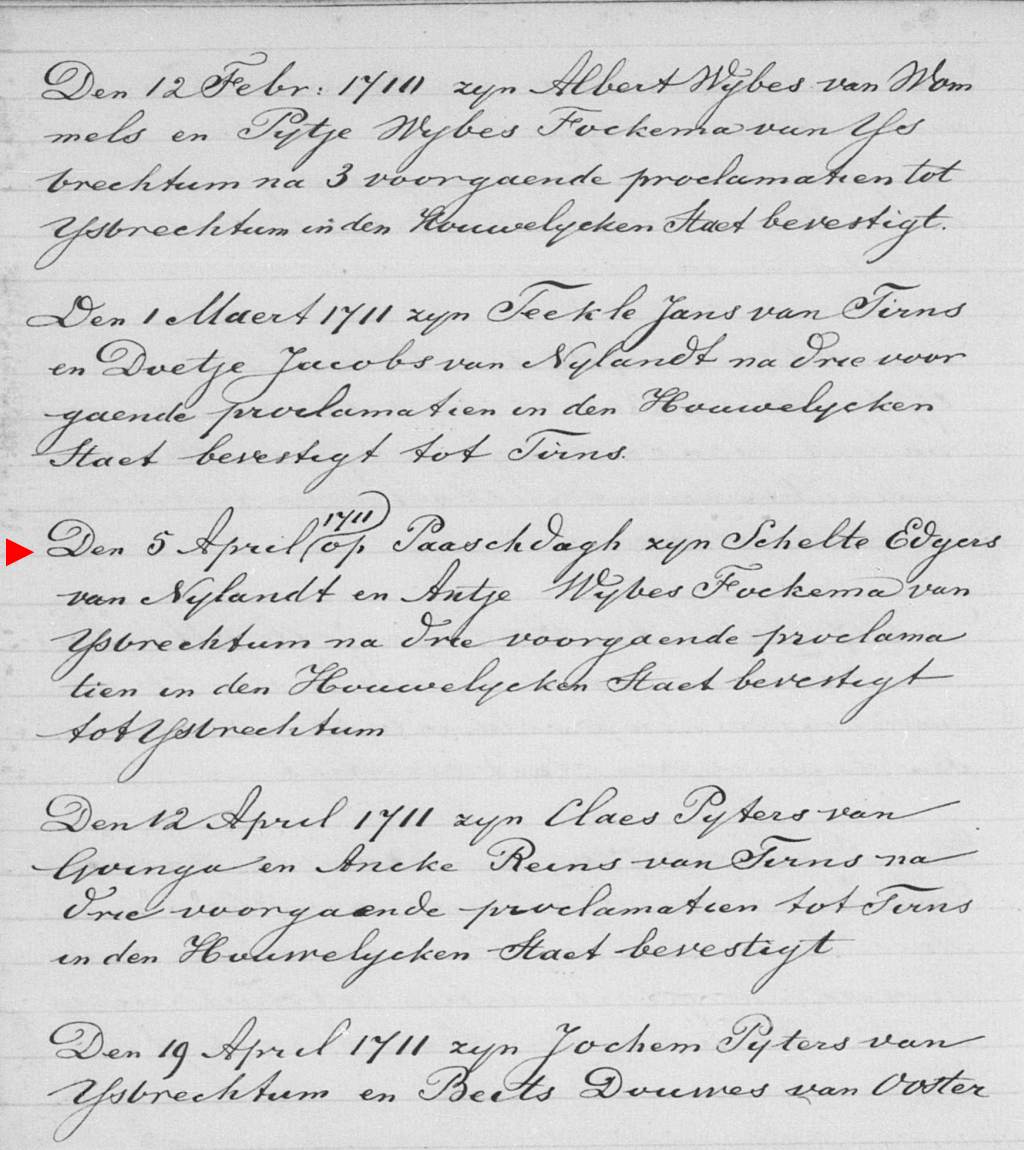 Den 12 Febr: 1711 zyn Albert Wybes van Wom
mels en Pytje Wybes Fockema van Yss
brechtum na 3 voorgaende proclamatien tot
Yssbrechtum in den Houwelycken Staet bevestigt.
Den 1 Maert 1711 zyn Feekle Jans van Tirns
en Doetje Jacobs van Nylandt na drie voor
gaende proclamatien in den Houwelycken
Staet bevestigt tot Tirns.
1711
Den 5 April (op Paaschdagh zyn Schelte Edgers
van Nylandt en Antje Wybes Fockema van
Yssbrechtum na drie voorgaende proclama
tien in den Houwelycken Staet bevestigt
tot Yssbrechtum
Den 12 April 1711 zyn Claes Pyters van
Goinga en Ancke Reins van Tirns na
drie voorgaende proclamatien tot Tirns
in den Houwelycken Staet bevestigt
Den 19 April 1711 zyn Jochem Pyters van
Yssbrechtum en Beits Douwes van Ooster